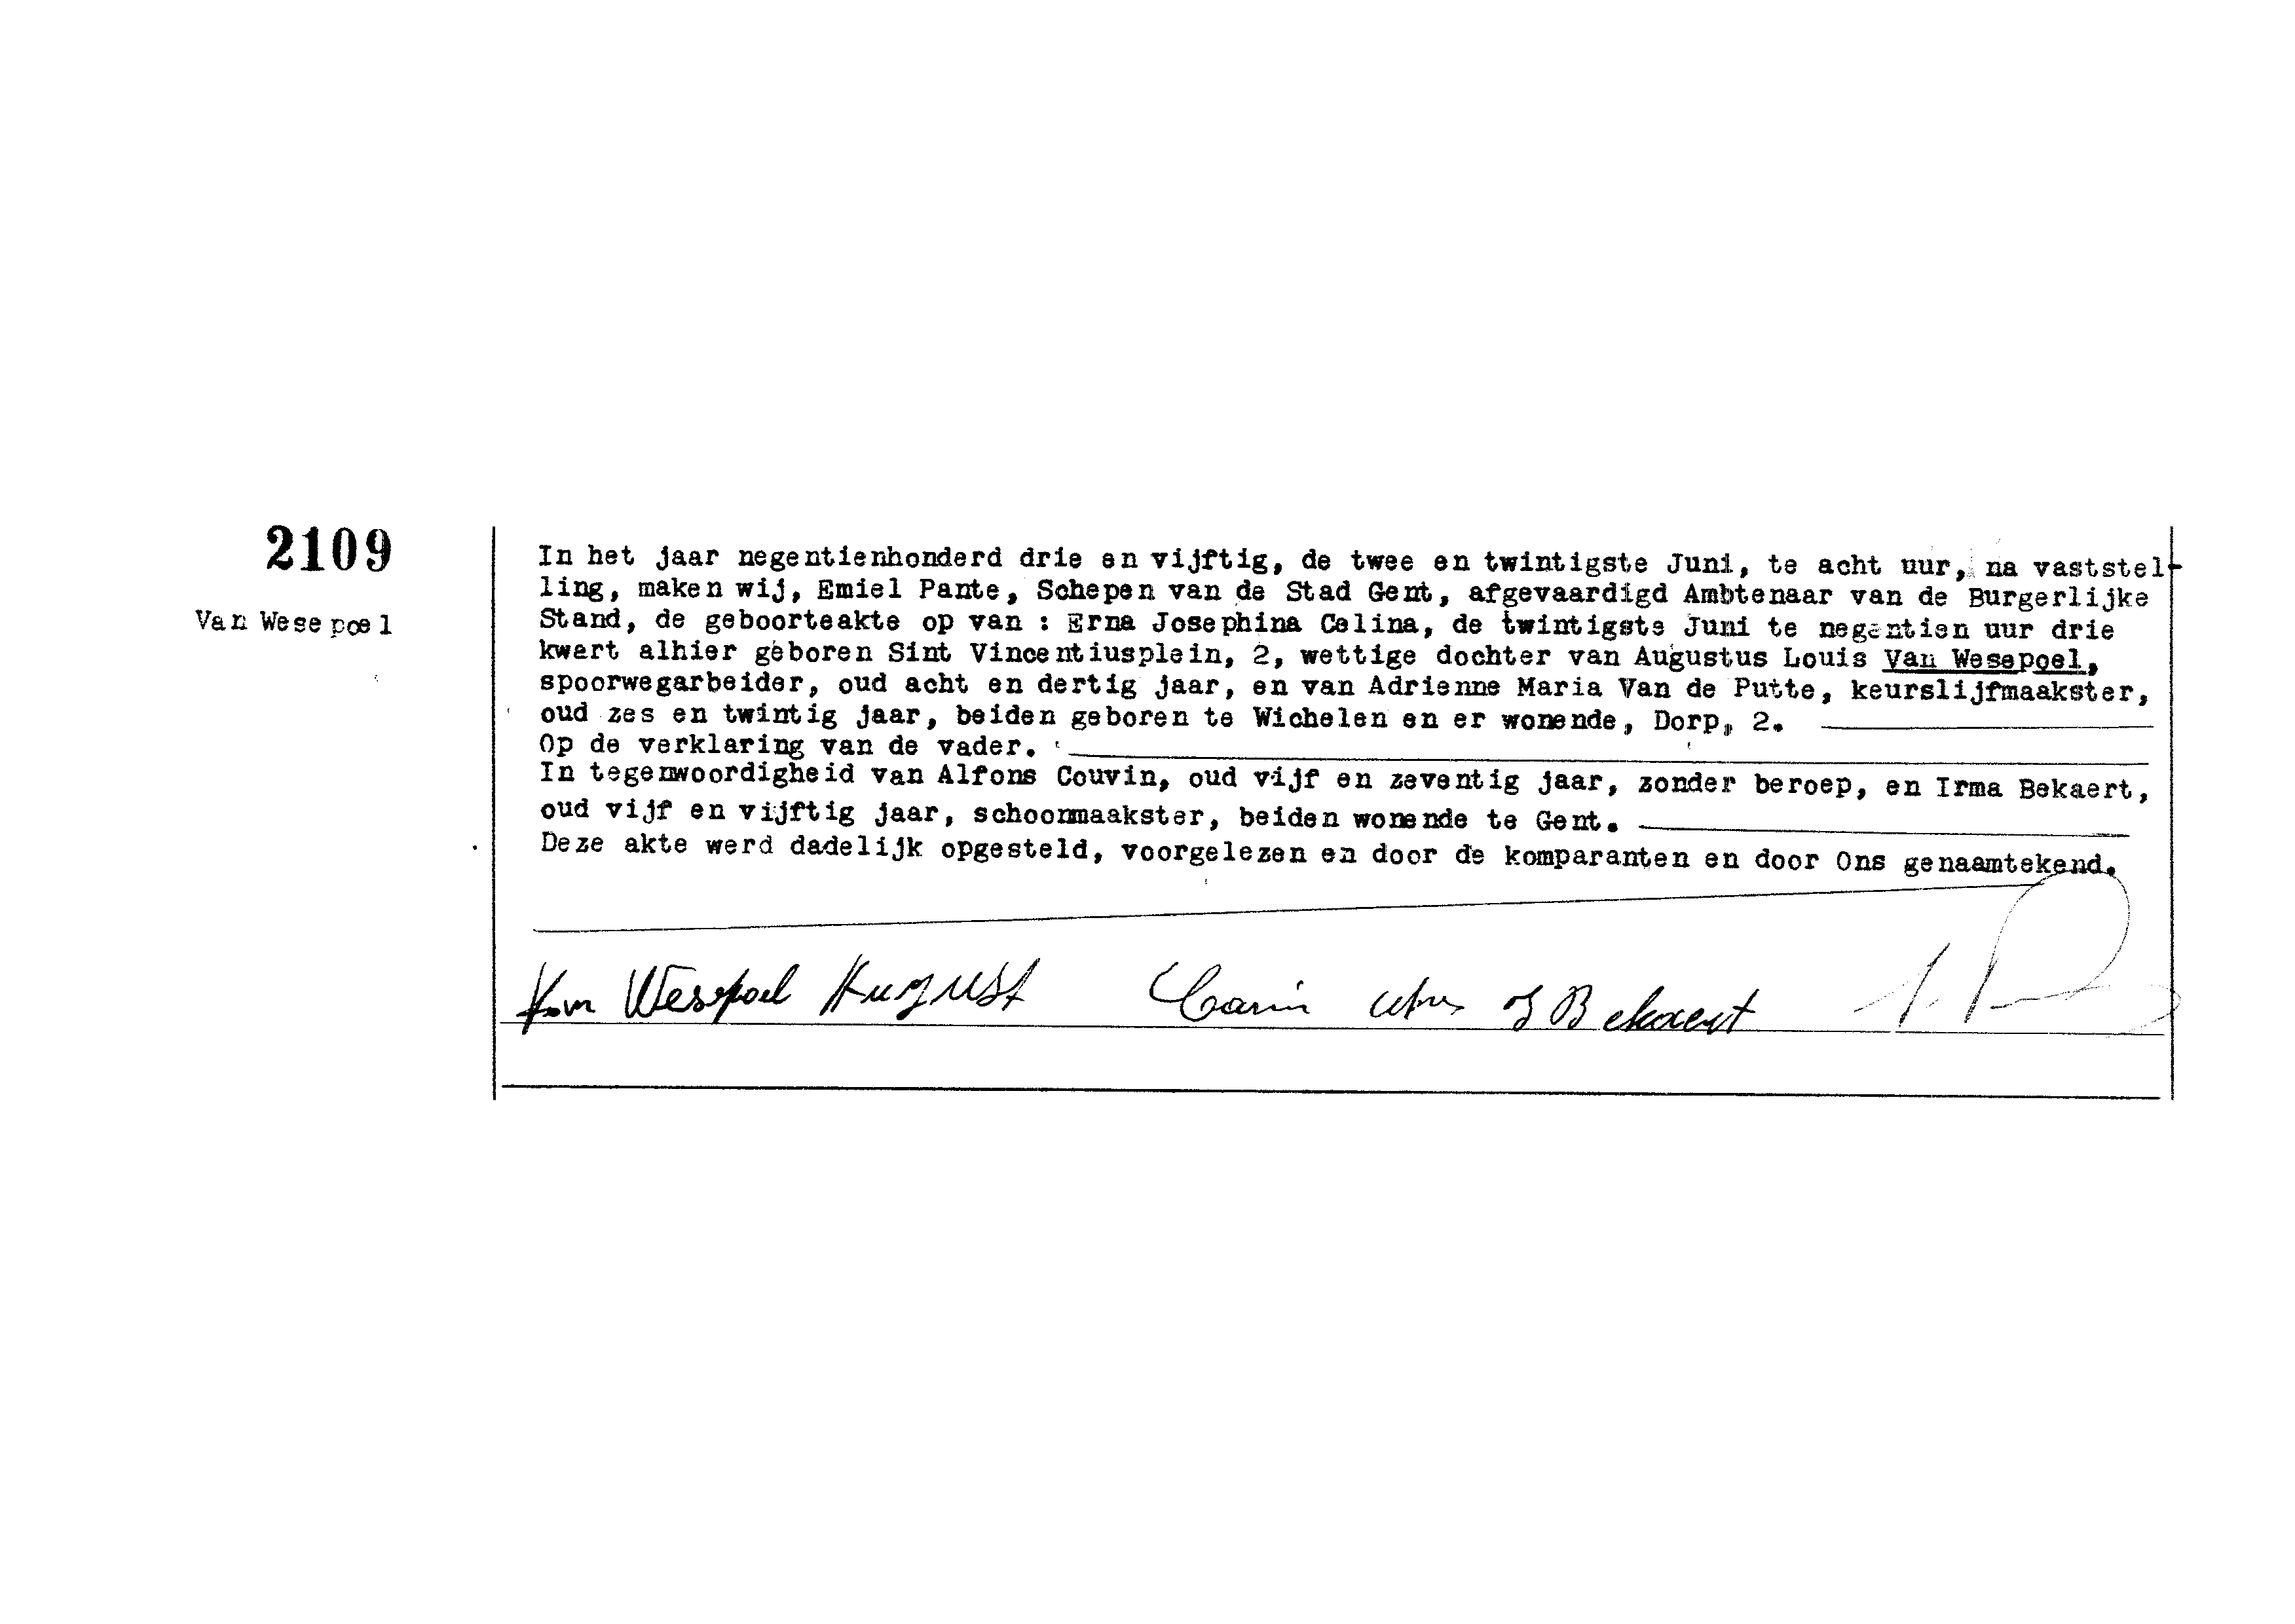 2109
Van Wesepoel
In het jaar negentienhonderd drie en vijftig, de twee en twintigste Juni, te acht uur, na vaststel-
ling, maken wij, Emiel Pante, Schepen van de Stad Gent, afgevaardigd Ambtenaar van de Burgerlijke
Stand, de geboorteakte op van : Erna Josephina Celina, de twintigste Juni te negentien uur drie
kwart alhier geboren Sint Vincentiusplein, 2, wettige dochter van Augustus Louis Van Wesepoel,
spoorwegarbeider, oud acht en dertig jaar, en van Adrienne Maria Van de Putte, keurslijfmaakster,
oud zes en twintig jaar, beiden geboren te Wichelen en er wonende, Dorp, 2.
Op de verklaring van de vader.
In tegenwoordigheid van Alfons Couvin, oud vijf en zeventig jaar, zonder beroep, en Irma Bekaert,
oud vijf en vijftig jaar, schoonmaakster, beiden wonende te Gent.
Deze akte werd dadelijk opgesteld, voorgelezen en door de komparanten en door Ons genaamtekend.
Van Wesepoel August Bekaert